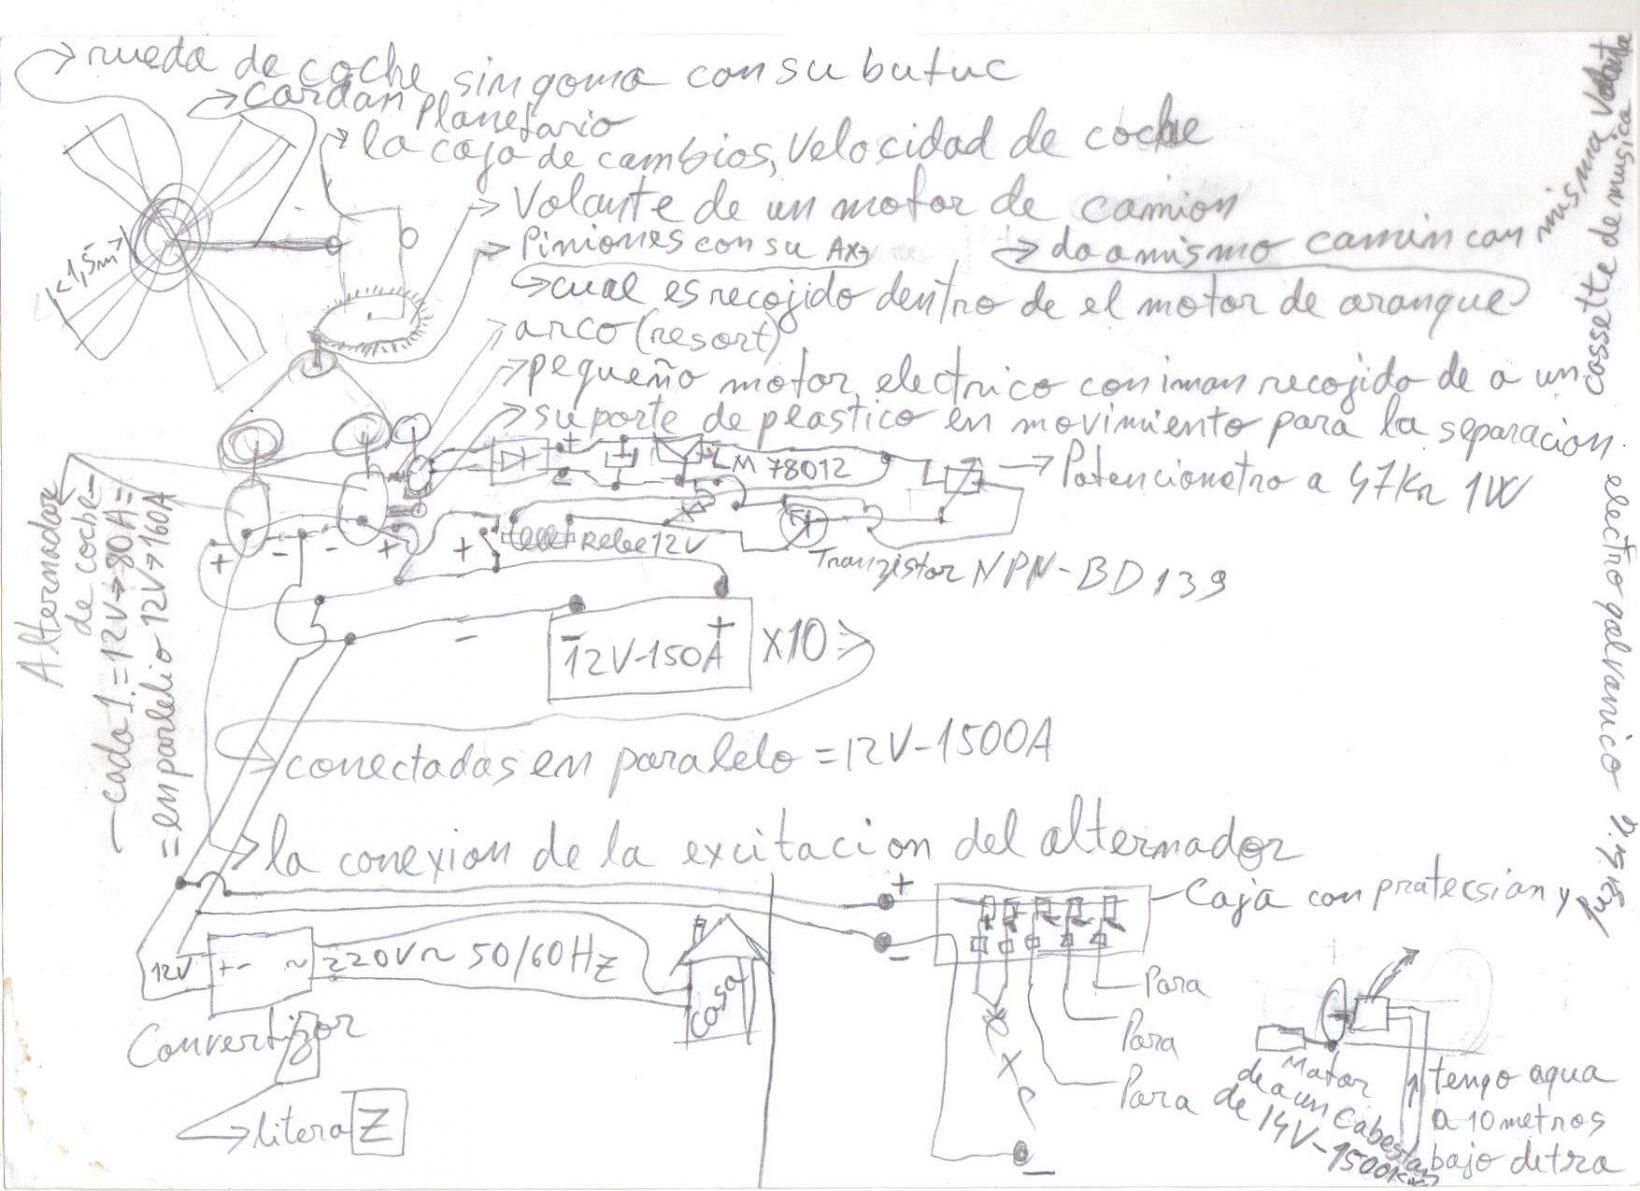 rueda de coche sin goma con su butuc
cardan planetario
la caja de cambios, Velocidad de coche
Volante de un motor de camion
Piniones con su Axy
da a mismo camin con misma Volanta
cual es recojido dentro de el motor de aranque
arco (resort)
pequeño motor electrico con iman recojido de a un cassette de musica
suporte de plastico en movimiento para la separacion
<1,5m>
+
-
LM 78012
Potenciometro a 47KΩ 1W
+ - - + +
Relee 12V
Tranzistor NPN-BD139
Alternador
de coche-
-cada 1.=12V→80A=
=en parelelio 12V→160A
-
- +
12V-150A
X10
conectadas en paralelo =12V-1500A
la conexion de la excitacion del alternador
+
-
Caja con protecsian y fuzibile electrogalvanico
12V
+- ~
220V~ 50/60HZ
Casa
Convertizor
litera Z
Para
Para
Para
-
Motor
de a un Cabestan
de 14V-1500
tengo aqua
a 10 metros
bajo de tra